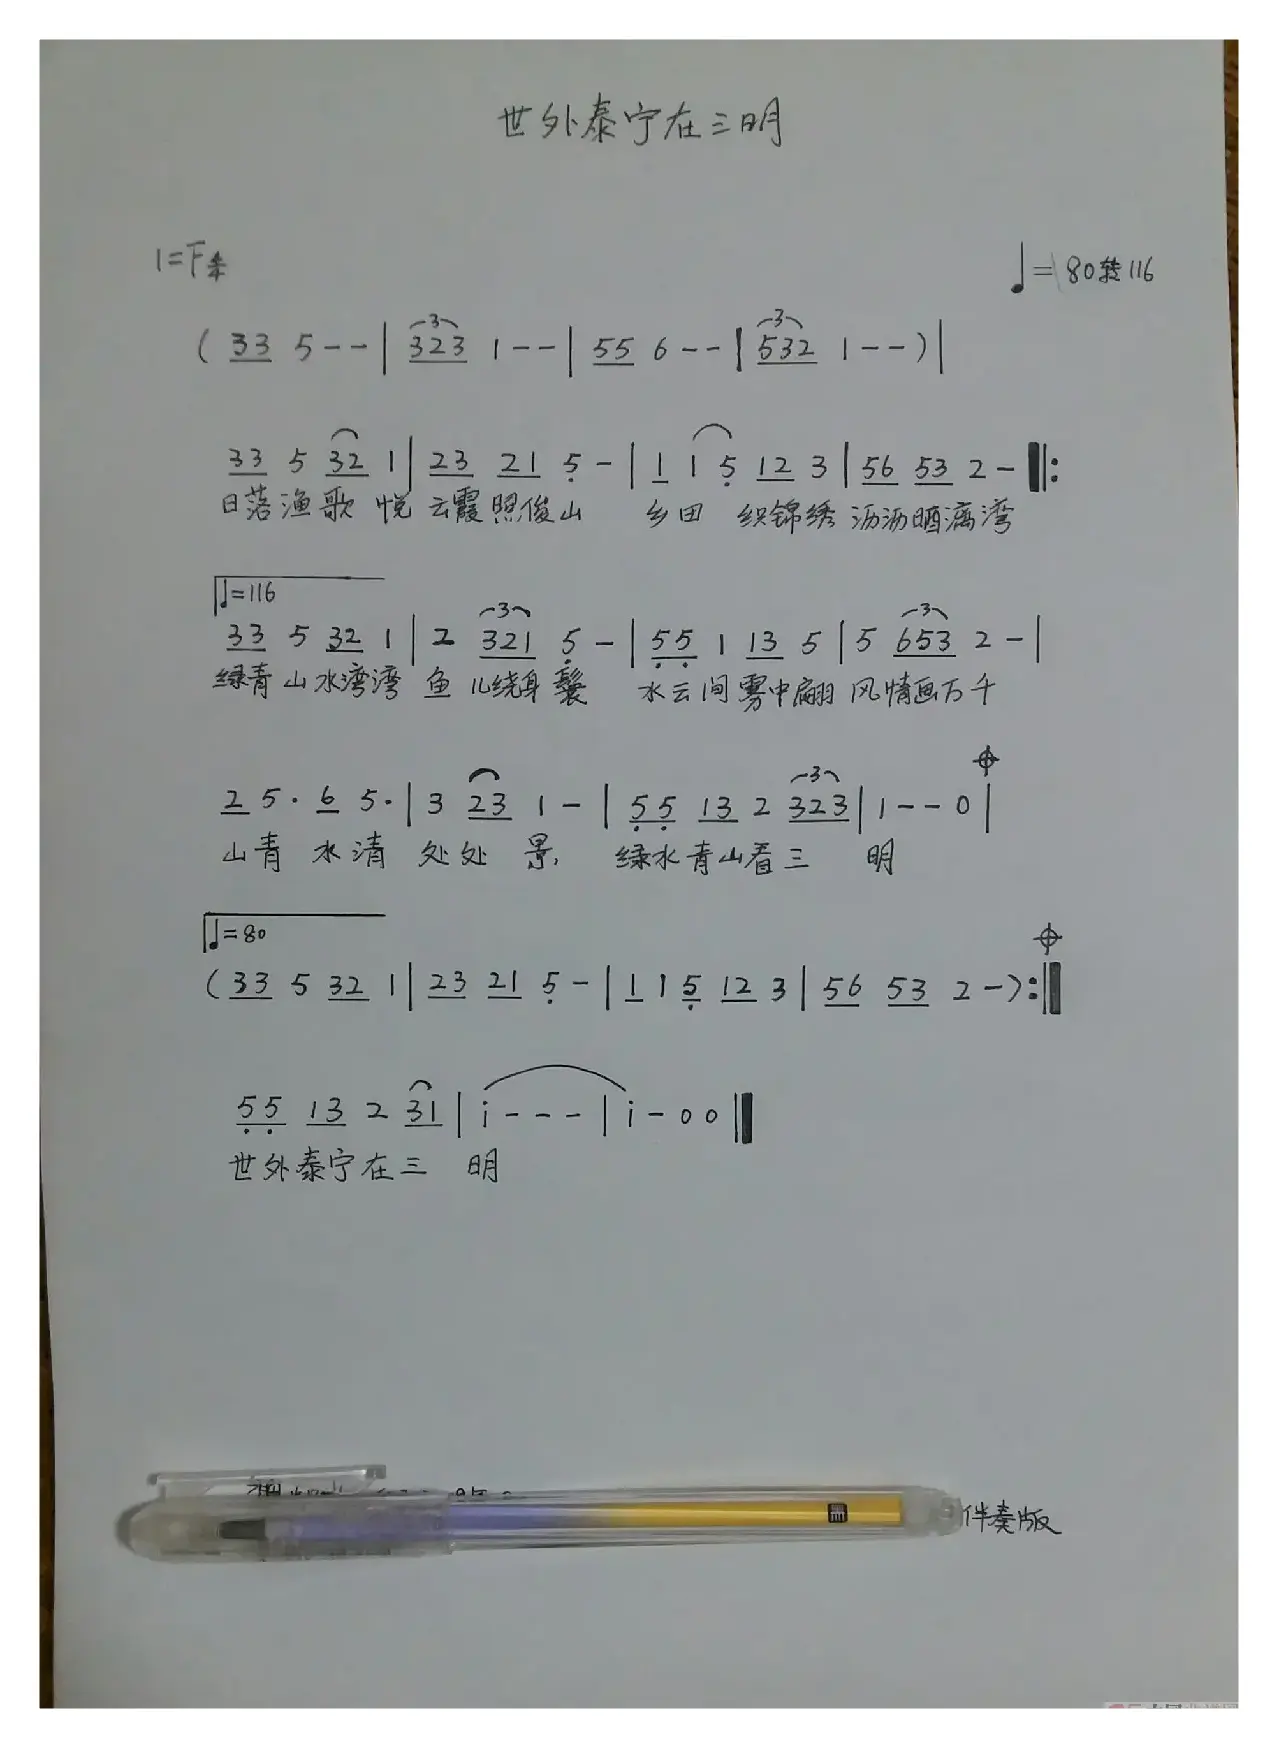 世外泰宁在三明
1=F本 ♩=80转116
( 33 5 - - | 323 1 - - | 55 6 - - | 532 1 - - ) |
3 3
33 5 32 1 | 23 21 5 - | 1 1 5 12 3 | 56 53 2 - ‖:
日落渔歌 悦 云霞照俊山 乡田 织锦绣 沥沥晒漓湾
♩=116
33 5 32 1 | 2 321 5 - | 55 1 13 5 | 5 653 2 - |
3 3
绿青山水湾湾 鱼儿绕身鬟 水云间雾中翩 风情画万千
2 5· 6 5· | 3 23 1 - | 55 13 2 323 | 1 - - 0 |
3
山青 水清 处处 景, 绿水青山看三 明
♩=80
( 33 5 32 1 | 23 21 5 - | 1 1 5 12 3 | 56 53 2 - ) :‖
55 13 2 31 | i - - - | i - 0 0 ‖
世外泰宁在三 明
伴奏版